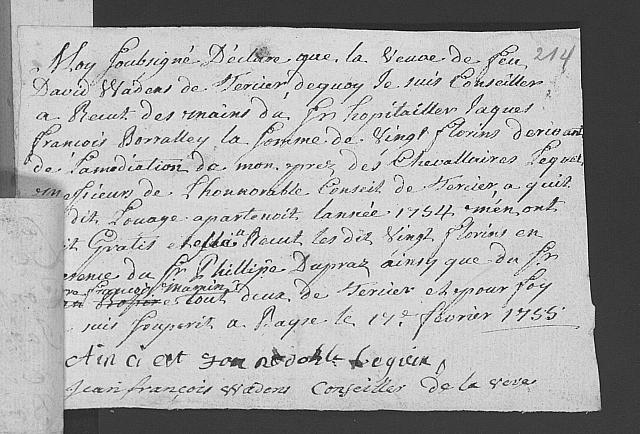 214
Moy Soubsigné Déclare que la Veuve de feu
David Wadens de Tercier dequoy Je suis Conseiller
a Recut des mains du Sr hopitailler Jaques
françois Borralley la somme de Vingt florins derivant
de Lamodiation du mon prez des Chevallaires Lequel
messieurs de Lhonnorable Conseit de Tercier a quit
dit Louage apartenoit lannée 1754 m'en ont
it Gratis et Recut les dit Vingt florins en
esence du Sr Phillipe Dupraz ainsy que du Sr
françois mamin
tout deux de Tercier et pour foy
suis souperit a Rayse le 17e fevrier 1755
Ainci et son nodoble Seguien
Jean françois wadens Conseiller de la veve